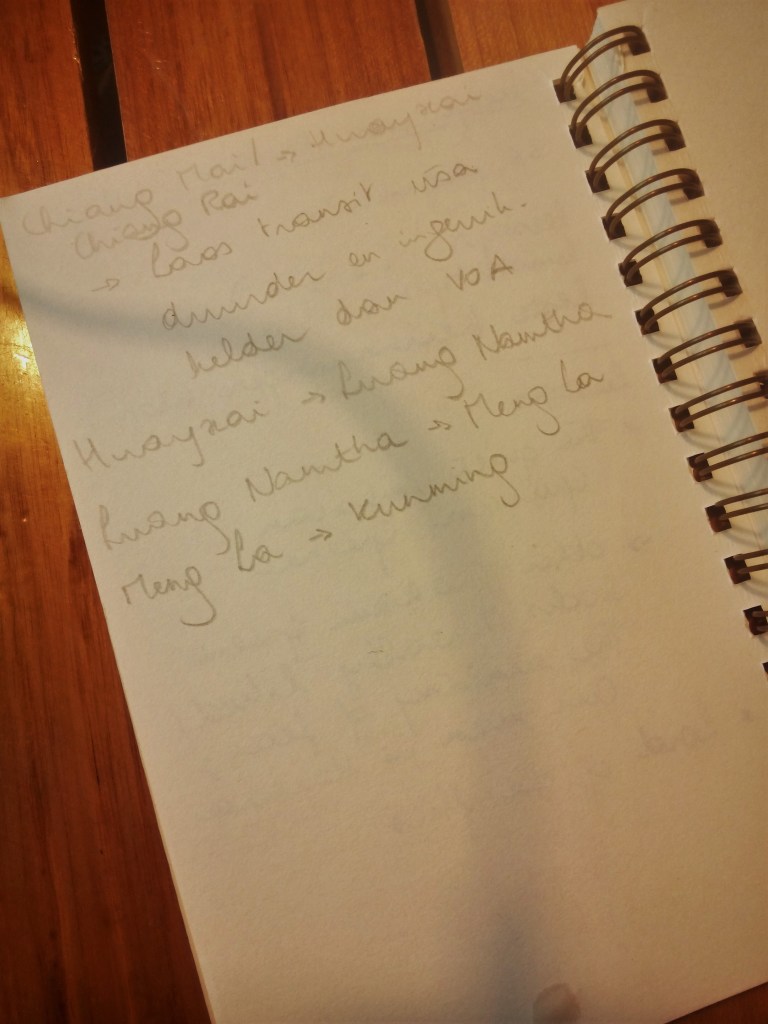 Chiang Mai/ → Huayxai
Chiang Rai
→ Laos transit visa
duurder en ingewik.
kelder dan VOA
Huayxai → Luang Namtha
Luang Namtha → Meng La
Meng La → Kunming